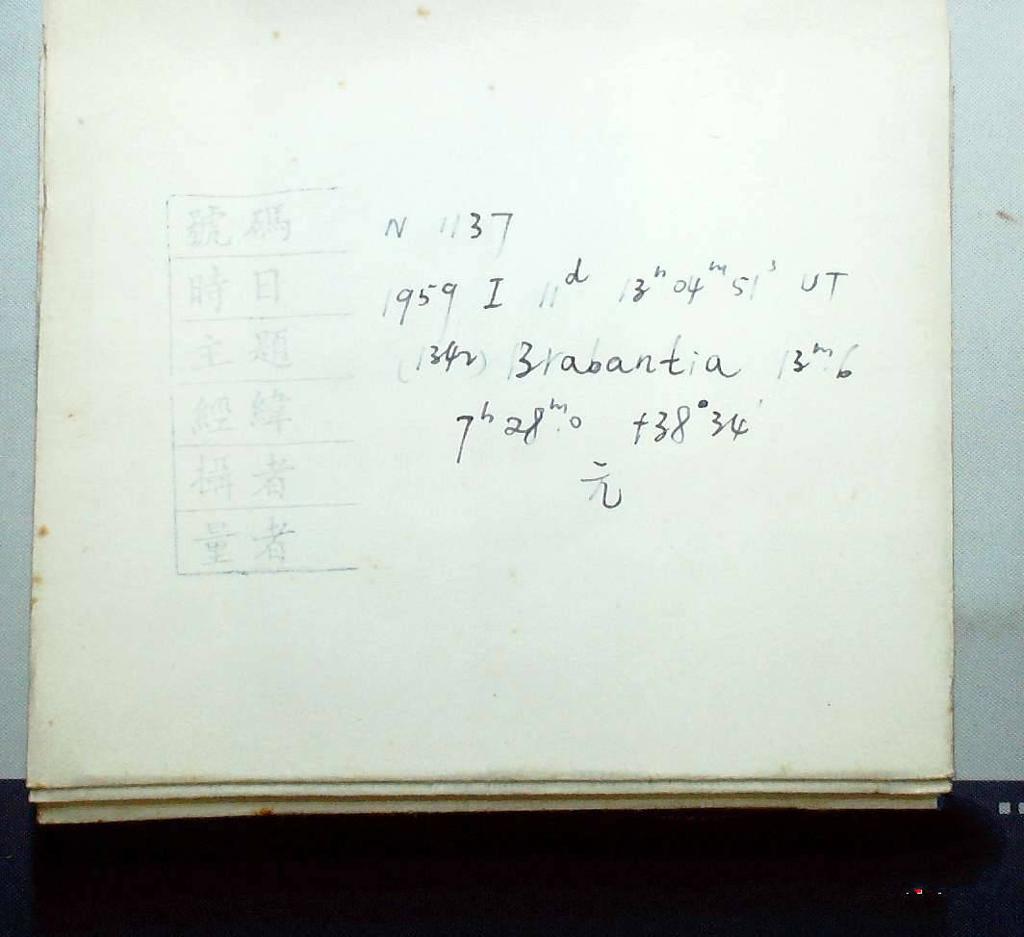 號碼 N 1137
時日 1959 I 11ᵈ 13ʰ04ᵐ51ˢ UT
主題 (1342) Brabantia 13ᵐ.6
經緯 7ʰ28ᵐ.0 +38°34′
攝者 元
量者